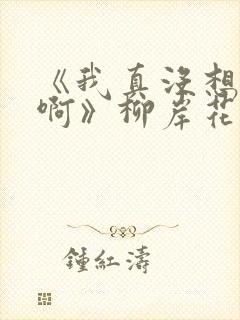 《我真没想
啊》柳岸花
鍾紅濤